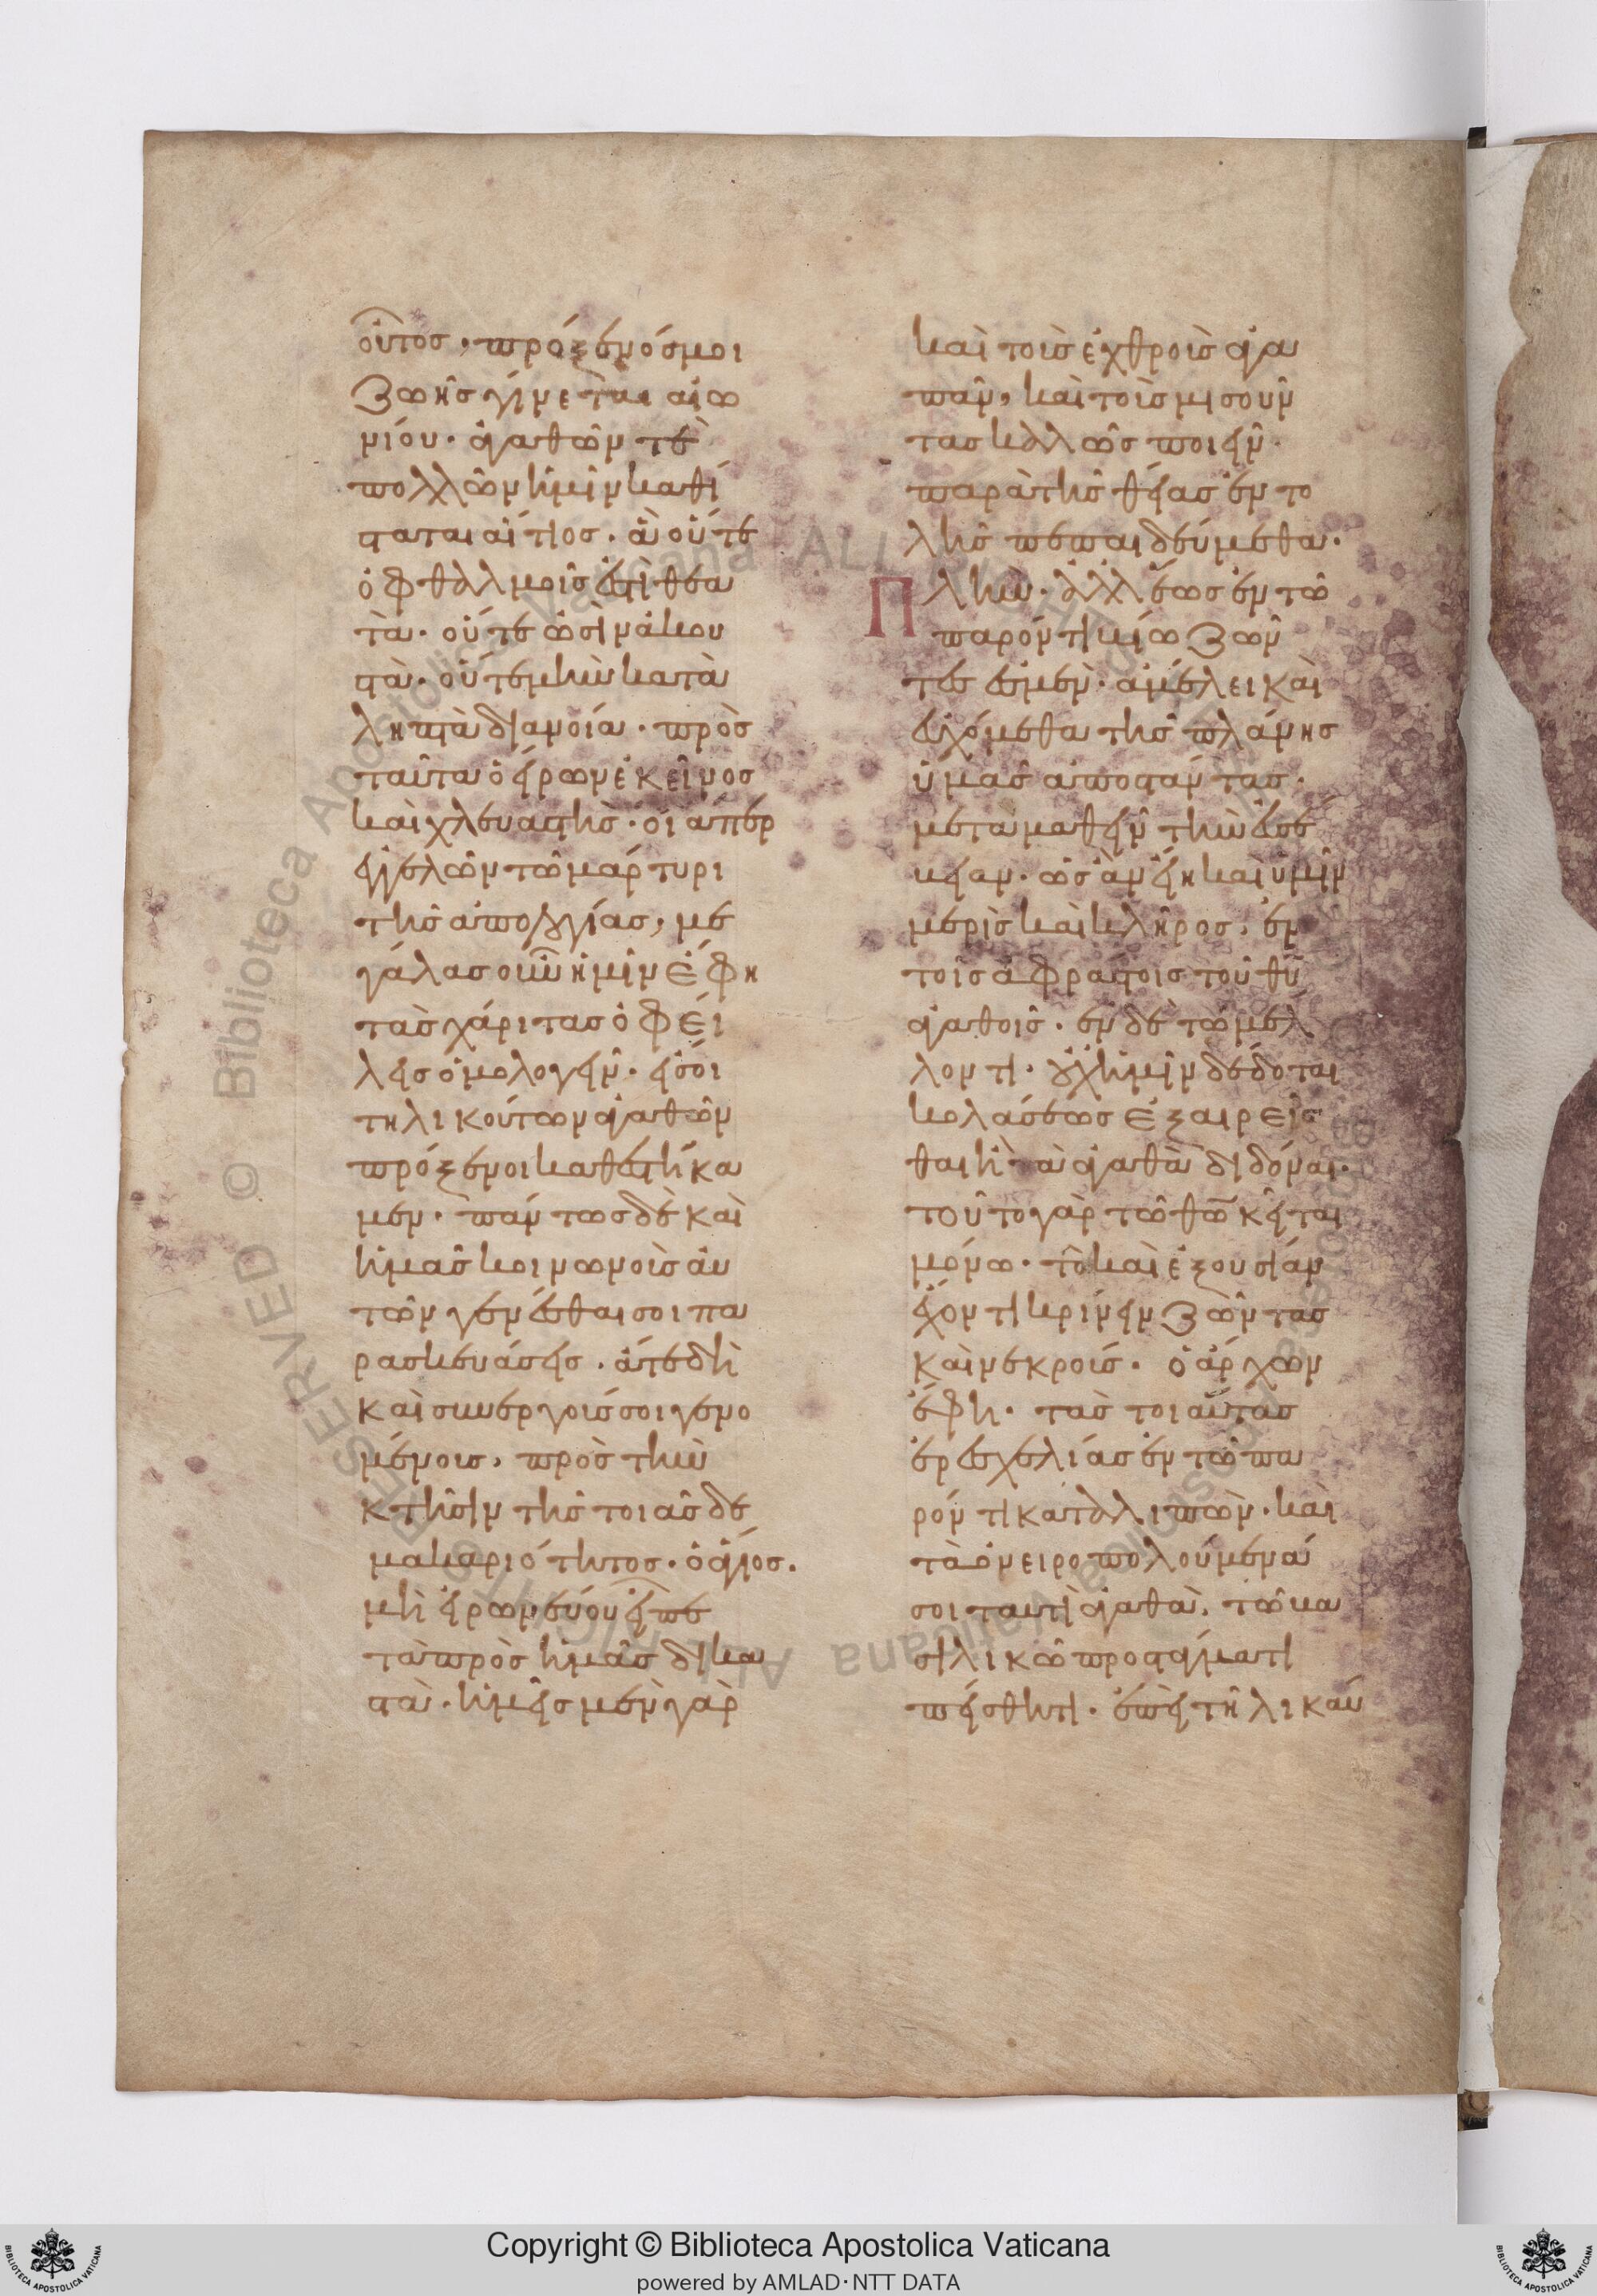 οὗτος· πρόξενός μοι
ζωῆς γίνεται αἰω
νίου· ἀγαθῶν τὲ
πολλῶν ἡμῖν καθί
σταται αἴτιος· ἃ οὔτε
ὀφθαλμοῖς ἐστὶ θεα
τὰ· οὔτε ὠσὶν ἀκου
στὰ· οὔτε μὴν κατὰ
ληπτὰ διανοία· πρὸς
ταῦτα ὁ εἴρων ἐκεῖνος
καὶ χλευαστὴς· οἱάπερ
ἐγγελῶν τῶ μάρτυρι
τῆς ἀπολογίας, με
γάλας οὖν ἡμῖν ἔφη
τὰς χάριτας ὀφεί
λεις ὁμολογεῖν· εἴ σοι
τηλικούτων ἀγαθῶν
πρόξενοι καθεστήκα
μεν· πάντως δὲ καὶ
ἡμᾶς κοινωνοὺς αὐ
τῶν γενέσθαι σοι πα
ρασκευάσεις· ἅτε δὴ
καὶ συνεργοῖς σοι γενο
μένοις, πρὸς τὴν
κτῆσιν τῆς τοιᾶσδε
μακαριότητος· ὁ ἅγιος·
μὴ εἰρωνεύου εἶπε
τὰ πρὸς ἡμᾶς δικα
στὰ· ἡμεῖς μὲν γὰρ
καὶ τοὺς ἐχθροὺς ἀγα
πᾶν, καὶ τοὺς μισοῦν
τας καλῶς ποιεῖν·
παρὰ τῆς θείας ἐντο
λῆς πεπαιδεύμεθα·
Πλὴν· ἀλλ' ἕως ἐν τῶ
παρόντι βίω ζῶν
τες ἐσμὲν· ἀμέλει καὶ
εὐχόμεθα τῆς πλάνης
ὑμᾶς ἀποστάντας·
μεταμαθεῖν τὴν εὐσέ
βειαν· ὡς ἂν εἴη καὶ ὑμῖν
μερὶς καὶ κλῆρος, ἐν
τοῖς ἀφράστοις τοῦ θυ
ἀγαθοῖς· ἐν δὲ τῶ μέλ
λοντι· οὐχ ἡμῖν δέδοται
κολάσεως ἐξαιρεῖσ
θαι ἢ τὰ ἀγαθὰ διδόναι·
τοῦτο γὰρ τῶ θω κεῖται
μόνω· τὸ καὶ ἐξουσίαν
ἔχοντι κρίνειν ζῶντας
καὶ νεκρούς· ὁ ἄρχων
ἔφη· τὰς τοιαύτας
ἐρεσχελίας ἐν τῶ πα
ρόντι καταλιπὼν· καὶ
τὰ ὀνειροπολούμενά
σοι ταυτὶ ἀγαθὰ, τῶ βα
σιλικῶ προστάγματι
πείσθητι· ἐπεὶ τηλικαύ